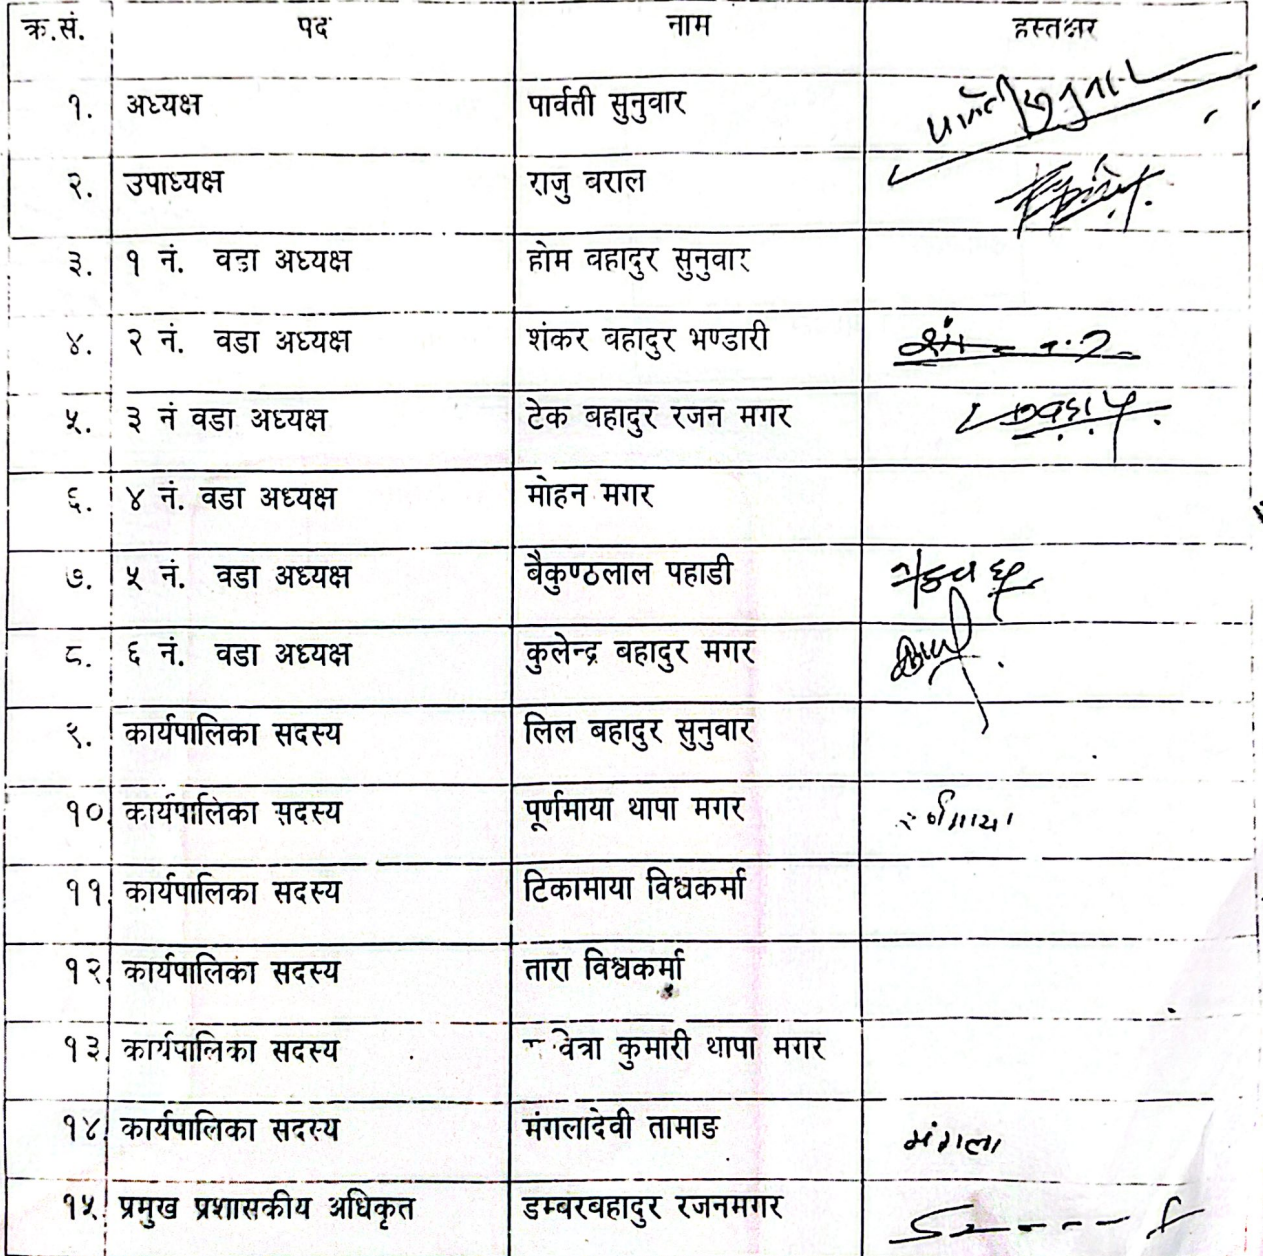 क्र.सं. पद नाम हस्तक्षर
१. अध्यक्ष पार्वती सुनुवार पार्वती सुनुवार
२. उपाध्यक्ष राजु वराल
३. १ नं. वडा अध्यक्ष होम वहादुर सुनुवार
४. २ नं. वडा अध्यक्ष शंकर वहादुर भण्डारी
५. ३ नं वडा अध्यक्ष टेक बहादुर रजन मगर
६. ४ नं. वडा अध्यक्ष मोहन मगर
७. ५ नं. वडा अध्यक्ष बैकुण्ठलाल पहाडी
८. ६ नं. वडा अध्यक्ष कुलेन्द्र बहादुर मगर
९. कार्यपालिका सदस्य लिल बहादुर सुनुवार
१० कार्यपालिका सदस्य पूर्णमाया थापा मगर
११ कार्यपालिका सदस्य टिकामाया विश्वकर्मा
१२ कार्यपालिका सदस्य तारा विश्वकर्मा
१३ कार्यपालिका सदस्य कुमारी थापा मगर
१४ कार्यपालिका सदस्य मंगलादेवी तामाङ मंगला
१५ प्रमुख प्रशासकीय अधिकृत डम्बरबहादुर रजनमगर